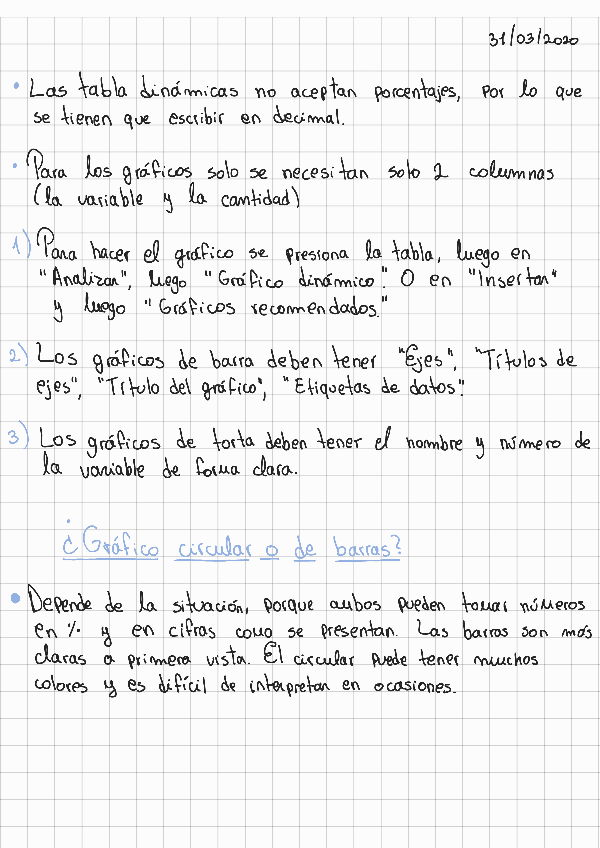 31/03/2020
• Las tabla dinámicas no aceptan porcentajes, por lo que
se tienen que escribir en decimal.
• Para los gráficos solo se necesitan solo 2 columnas
(la variable y la cantidad)
1) Para hacer el gráfico se presiona la tabla, luego en
"Analizar", luego "Gráfico dinámico". O en "Insertar"
y luego "Gráficos recomendados."
2) Los gráficos de barra deben tener "Ejes", "Títulos de
ejes", "Título del gráfico", "Etiquetas de datos".
3) Los gráficos de torta deben tener el nombre y número de
la variable de forma clara.
¿Gráfico circular o de barras?
• Depende de la situación, porque ambos pueden tomar números
en % y en cifras como se presentan. Las barras son más
claras a primera vista. El circular puede tener muchos
colores y es difícil de interpretar en ocasiones.